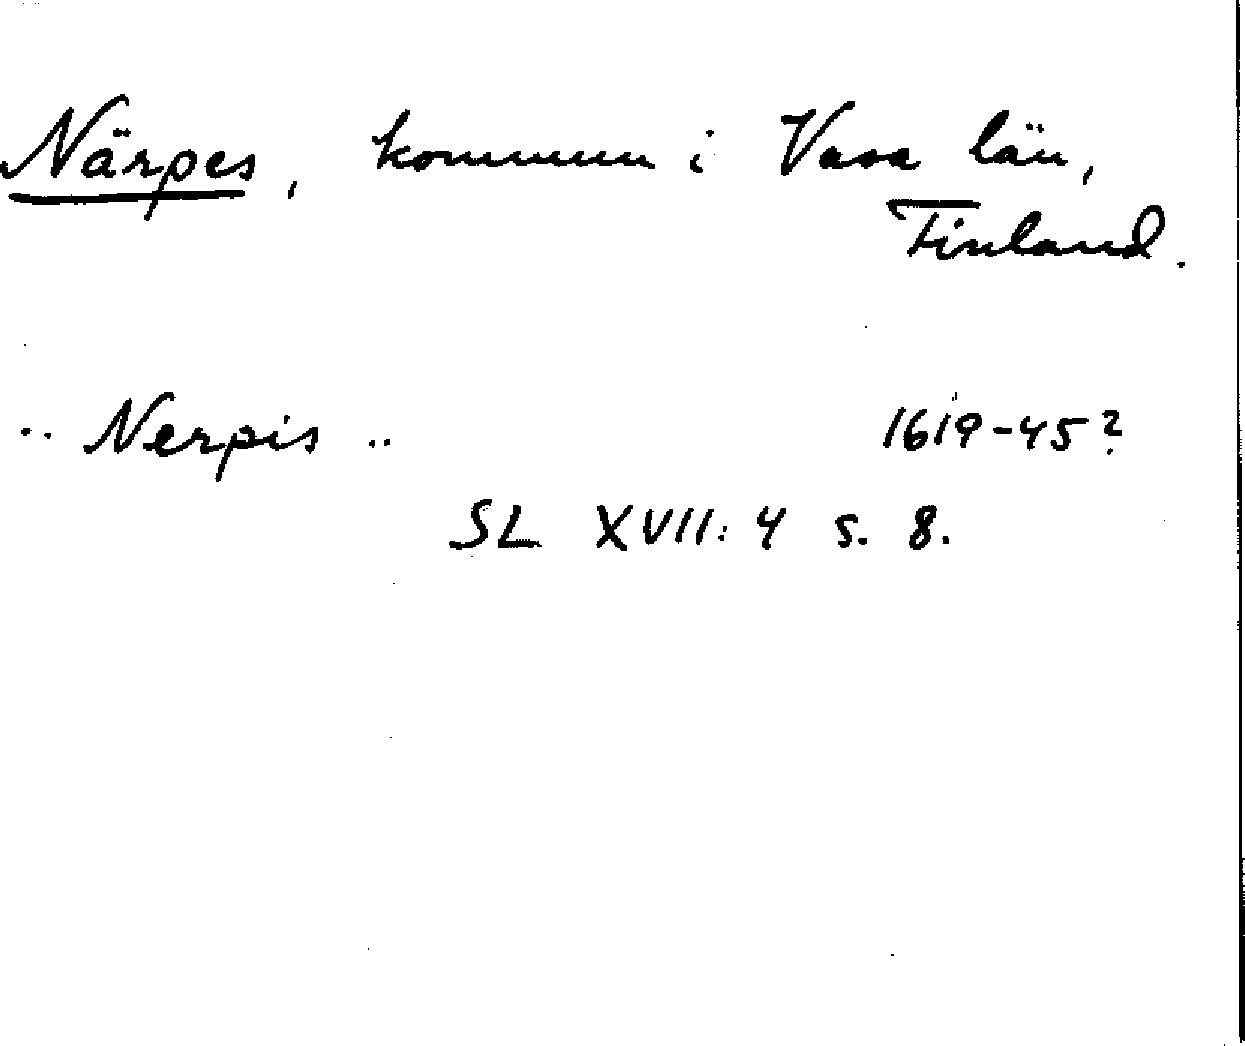 Närpes, kommun i Vasa län,
Finland.
.. Nerpis .. 1619-45?
SL XVII:4 s. 8.